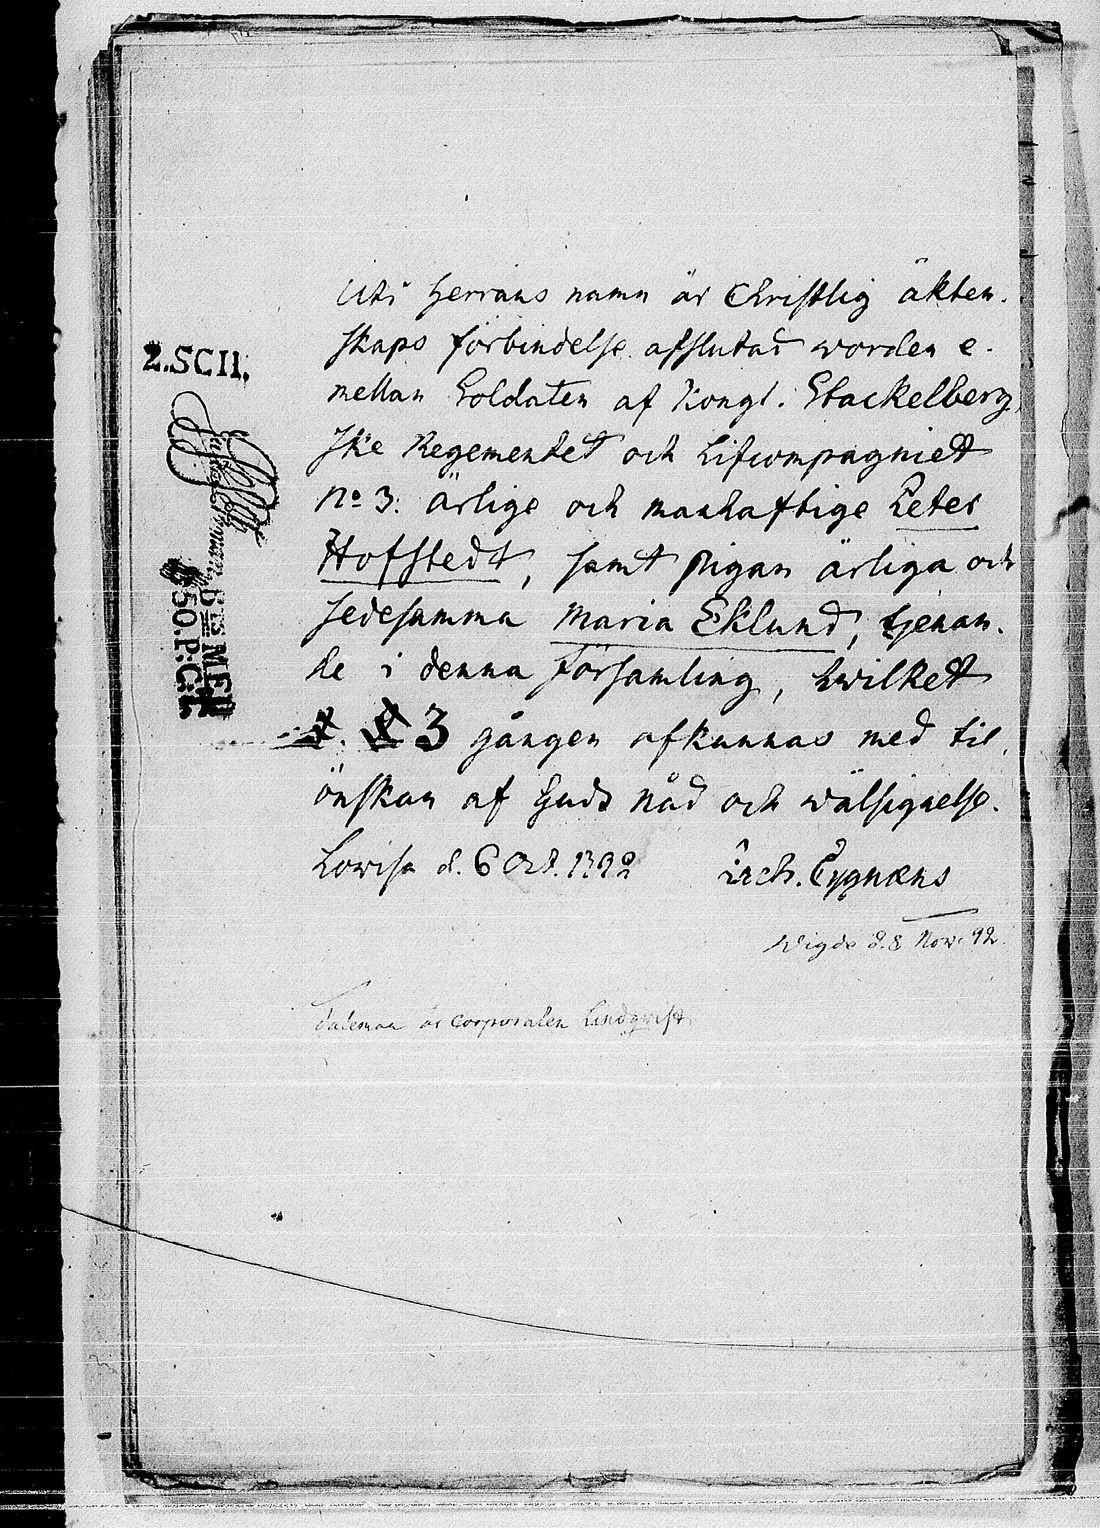 Uti Herrans namn är Christlig äkten-
skaps förbindelse afslutad worden e-
mellan Soldaten af Kongl. Stackelberg-
ske Regementet och Lifcompagniet
No 3: ärlige och manhaftige Peter
Hofstedt, samt pigan ärliga och
sedesamma Maria Eklund, tjenan-
de i denna församling, hwilket
1. 2 3 gången afkunnas med til-
önskan af Guds nåd och wälsignelse.
Lowisa d. 6 Oct. 1792
Zach. Cygnæus
Wigde d. 8 Nov. 92
Taleman är Corporalen Lindqvist
2.SCH.
50.P.C.